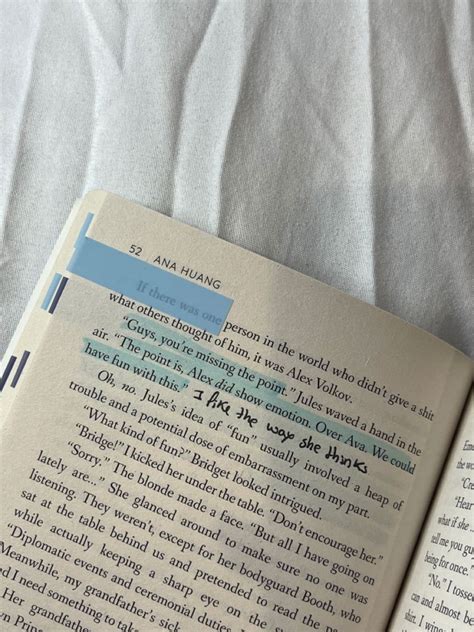 52 ANA HUANG
If there was one person in the world who didn't give a shit
what others thought of him, it was Alex Volkov.
"Guys, you're missing the point." Jules waved a hand in the
air. "The point is, Alex did show emotion. Over Ava. We could
have fun with this." I like the way she thinks
Oh, no. Jules's idea of "fun" usually involved a heap of
trouble and a potential dose of embarrassment on my part.
"What kind of fun?" Bridget looked intrigued.
"Bridge!" I kicked her under the table. "Don't encourage her."
"Sorry." The blonde made a face. "But all I have going on
lately are..." She glanced around to make sure no one was
listening. They weren't, except for her bodyguard Booth, who
sat at the table behind us and pretended to read the
while actually keeping a sharp eye on the
"Diplomatic events and ceremonial duties.
Meanwhile, my grandfather's sick
I need something to take
Her grandfather
Prin
"Cre
"Hear
what if she
tell me you gu
being for once."
"No." I tossed
can and almost
shirt. I wing